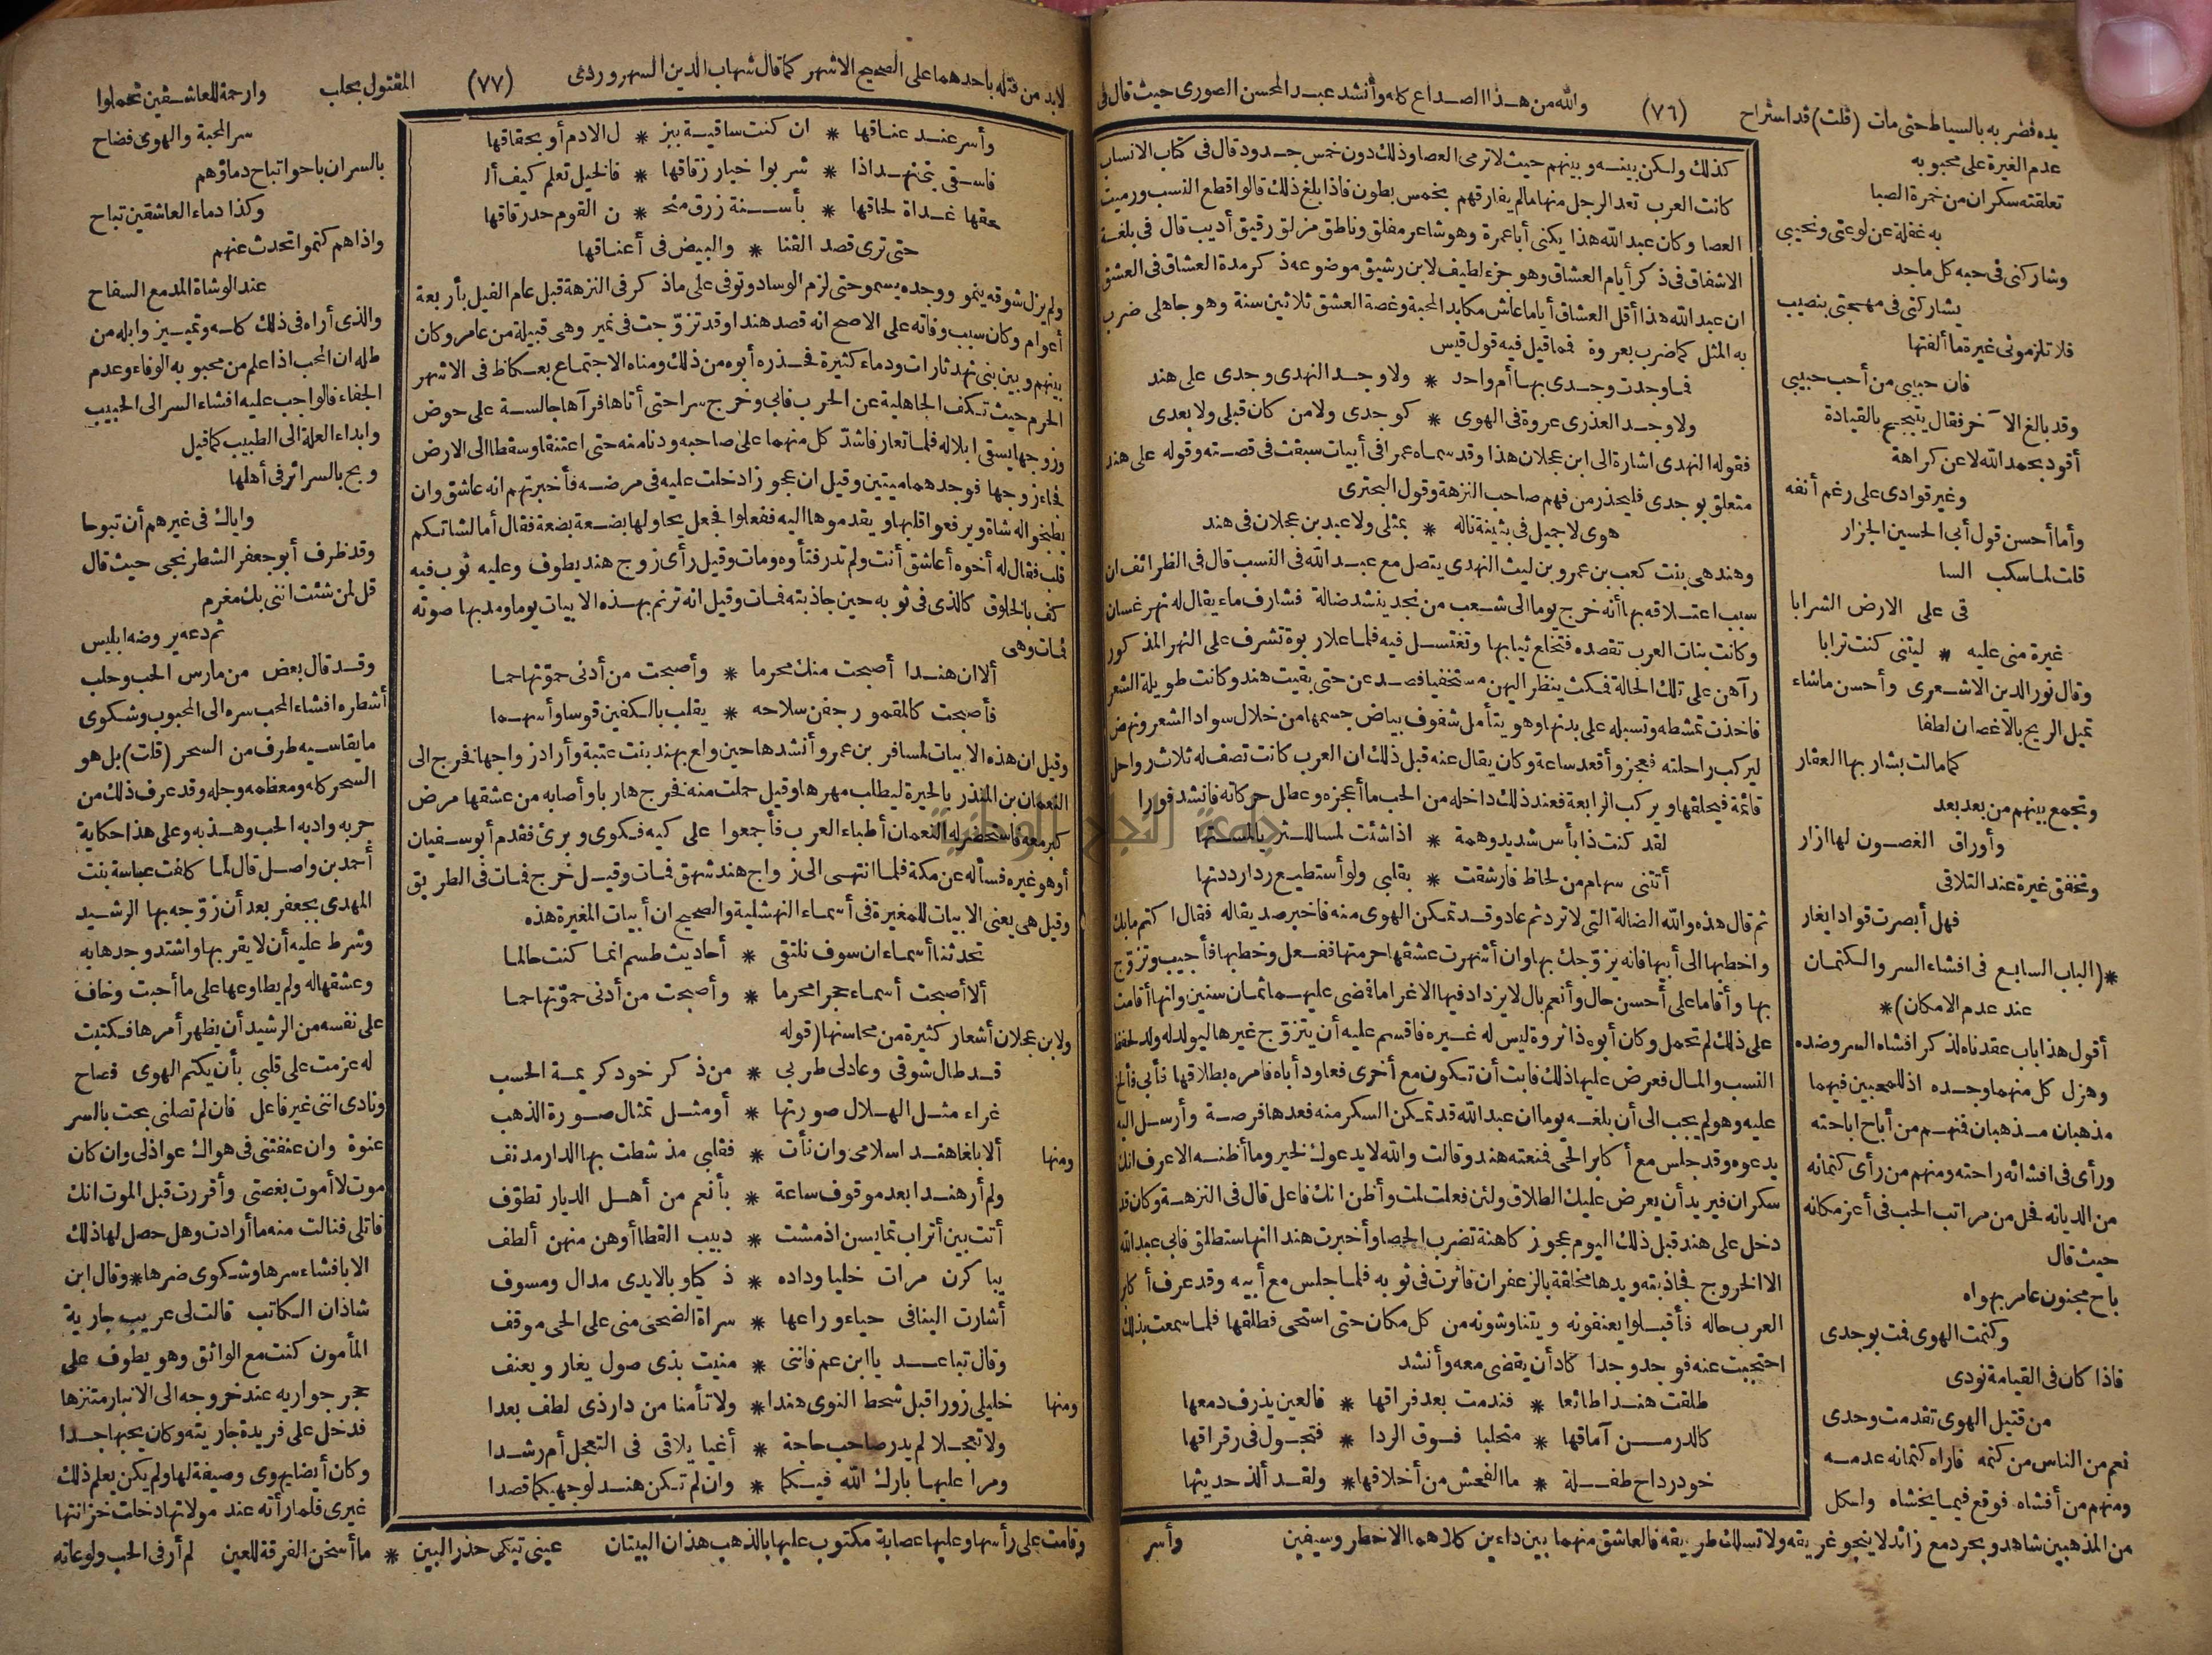 والله من هذا الصداع كله وأنشد عبد المحسن الصورى حيث قال فى
(٧٦)
يده فضربه بالسياط حتى مات (قلت) قد استراح
عدم الغيرة على محبوبه
تعلقته سكران من خمرة الصبا
به غفلة عن لوعتى ونحيبى
وشاركنى فى حبه كل ماجد
يشاركنى فى مهجتى بنصيب
فلا تلزمونى غيرة ما ألفتها
فان حبيبى من أحب حبيبى
وقد بالغ الآخر فقال يتبجح بالقيادة
أقود بحمد الله لا عن كراهة
وغير قوادى على رغم أنفه
وأما أحسن قول أبى الحسين الجزار
قلت لما سكب السا
قى على الارض الشرابا
غيرة منى عليه * ليتنى كنت ترابا
وقال نور الدين الاشعرى وأحسن ماشاء
تميل الريح بالاغصان لطفا
كما مالت بشار بها العقار
وتجمع بينهم من بعد بعد
وأوراق الغصون لها ازار
وتخفق غيرة عند التلاقى
فهل أبصرت قوادا يغار
*(الباب السابع فى افشاء السر والكتمان
عند عدم الامكان)*
أقول هذا باب عقدناه لذكر افشاء السر وضده
وهزل كل منهما وجده اذ للمحبين فيهما
مذهبان مذهبان فمنهم من أباح اباحته
ورأى فى افشائه راحته ومنهم من رأى كتمانه
من الديانه فحل من مراتب الحب فى أعز مكانه
حيث قال
باح مجنون عامر بهواه
وكتمت الهوى فمت بوجدى
فاذا كان فى القيامة نودى
من قتيل الهوى تقدمت وحدى
نعم من الناس من كتمه فاراه كتمانه عدمه
ومنهم من أفشاه فوقع فيما يخشاه ولكل
من المذهبين شاهد وبحر دمع زائد لا ينجو غريقه ولا تسلك طريقه فالعاشق منهما بين داءين كلاهما الاخطر وسيفين
كذلك ولكن بينه وبينهم حيث لا ترمى العصا وذلك دون خمس جدود قال فى كتاب الانساب
كانت العرب تعد الرجل منها مالم يفارقهم بخمس بطون فاذا بلغ ذلك قالوا قطع النسب ورميت
العصا وكان عبد الله هذا يكنى أبا عمرة وهو شاعر مفلق وناطق مزلق رقيق أديب قال فى بلغة
الاشفاق فى ذكر أيام العشاق وهو جزء لطيف لابن رشيق موضوعه ذكر مدة العشاق فى العشق
ان عبد الله هذا أقل العشاق أياما عاش مكابد المحبة وغصة العشق ثلاثين سنة وهو جاهلى ضرب
به المثل كما ضرب بعروة فما قيل فيه قول قيس
فما وجدت وجدى بها أم واحد * ولا وجد النهدى وجدى على هند
ولا وجد العذرى عروة فى الهوى * كوجدى ولا من كان قبلى ولا بعدى
فقوله النهدى اشارة الى ابن عجلان هذا وقد سماه عمرا فى أبيات سبقت فى قصته وقوله على هند
متعلق بوجدى فليحذر من فهم صاحب النزهة وقول البحترى
هوى لا جميل فى بثينة ناله * بمثلى ولا عبد بن عجلان فى هند
وهند هى بنت كعب بن عمرو بن ليث النهدى يتصل مع عبد الله فى النسب قال فى الظرائف ان
سبب اعتلاقه بها أنه خرج يوما الى شعب من نجد ينشد ضالة فشارف ماء يقال له نهر غسان
وكانت بنات العرب تقصده فتخلع ثيابها وتغتسل فيه فلما علا ربوة تشرف على النهر المذكور
رآهن على تلك الحالة فمكث ينظر اليهن مستخفيا فصعدن حتى بقيت هند وكانت طويلة الشعر
فاخذت تمشطه وتسبله على بدنها وهو يتأمل شفوف بياض جسمها من خلال سواد الشعر ونهض
ليركب راحلته فعجز وأقعد ساعة وكان يقال عنه قبل ذلك ان العرب كانت تصف له ثلاث رواحل
قائمة فيحلقها ويركب الرابعة فعند ذلك داخله من الحب ما أعجزه وعطل حركاته فأنشد فورا
لقد كنت ذا بأس شديد وهمة * اذا شئت لمسا للثريا لمستها
أتتنى سهام من لحاظ فارشقت * بقلبى ولو أستطيع ردا رددتها
ثم قال هذه والله الضالة التى لا ترد ثم عاد وقد تمكن الهوى منه فاخبر صديقا له فقال اكتم ما بك
واخطبها الى أبيها فانه يزوجك بها وان أشهرت عشقها حرمتها ففعل وخطبها فأجيب وتزوج
بها وأقاما على أحسن حال وأنعم بال لا يزداد فيها الا غراما فمضى عليهما ثمان سنين وانها أقامت
على ذلك لم تحمل وكان أبوه ذا ثروة ليس له غيره فاقسم عليه أن يتزوج غيرها ليولد له ولد لحفظ
النسب والمال فعرض عليها ذلك فابت أن تكون مع أخرى فعاود أباه فامره بطلاقها فأبى فألح
عليه وهو لم يجب الى أن بلغه يوما ان عبد الله قد تمكن السكر منه فعدها فرصة وأرسل اليه
يدعوه وقد جلس مع أكابر الحى فمنعته هند وقالت والله لا يدعوك لخير وما أظنه الا عرف انك
سكران فيريد أن يعرض عليك الطلاق ولئن فعلت لمت وأظن انك فاعل قال فى النزهة وكان قد
دخل على هند قبل ذلك اليوم عجوز كاهنة تضرب الحصا وأخبرت هندا انها ستطلق فابى عبد الله
الا الخروج فجاذبته ويدها مخلقة بالزعفران فاثرت فى ثوبه فلما جلس مع أبيه وقد عرف أكابر
العرب حاله فأقبلوا يعنفونه ويتناوشونه من كل مكان حتى استحى فطلقها فلما سمعت بذلك
احتجبت عنه فوجد وجدا كاد أن يقضى معه وأنشد
طلقت هندا طائعا * فندمت بعد فراقها * فالعين يذرف دمعها
كالدر من آماقها * متحلبا فوق الردا * فتجول فى رقراقها
خود رداح طفلة * ما الفحش من أخلاقها * ولقد ألذ حديثها
وأسر
لابد من قتله باحدهما على الصحيح الاشهر كما قال شهاب الدين السهروردى
(٧٧)
المقتول بحلب
وارحمة للعاشقين تحملوا
سر المحبة والهوى فضاح
بالسر ان باحوا تباح دماؤهم
وكذا دماء العاشقين تباح
واذا هم كتموا تحدث عنهم
عند الوشاة المدمع السفاح
والذى أراه فى ذلك كله وتمييز وابله من
طله ان المحب اذا علم من محبوبه الوفاء وعدم
الجفاء فالواجب عليه افشاء السر الى الحبيب
وابداء العلة الى الطبيب كما قيل
وبح بالسرائر فى أهلها
واياك فى غيرهم أن تبوحا
وقد ظرف أبو جعفر الشطرنجى حيث قال
قل لمن شئت اننى بك مغرم
ثم دعه يروضه ابليس
وقد قال بعض من مارس الحب وحلب
أشطره افشاء المحب سره الى المحبوب وشكوى
ما يقاسيه طرف من السحر (قلت) بل هو
السحر كله ومعظمه وجله وقد عرف ذلك من
جربه وادبه الحب وهذبه وعلى هذا حكاية
أحمد بن واصل قال لما كلفت عباسة بنت
المهدى بجعفر بعد أن زوجه بها الرشيد
وشرط عليه أن لا يقربها واشتد وجدها به
وعشقها له ولم يطاوعها على ما أحبت وخاف
على نفسه من الرشيد أن يظهر أمرها فكتبت
له عزمت على قلبى بأن يكتم الهوى فصاح
ونادى اننى غير فاعل فان لم تصلنى بحت بالسر
عنوة وان عنفتنى فى هواك عواذلى وان كان
موت لا أموت بغصتى وأقررت قبل الموت انك
قاتلى فنالت منه ما أرادت وهل حصل لها ذلك
الا بافشاء سرها وشكوى ضرها * وقال ابن
شاذان الكاتب قالت لى عريب جارية
المأمون كنت مع الواثق وهو يطوف على
حجر جواريه عند خروجه الى الانبار متنزها
فدخل على فريدة جاريته وكان يحبها جدا
وكان أيضا يهوى وصيفة لها ولم يكن يعلم ذلك
غيرى فلما رأته عند مولاتها دخلت خزانتها
وقامت على رأسها وعليها عصابة مكتوب عليها بالذهب هذان البيتان
عينى تبكى حذر البين * ما أسخن الفرقة للعين
لم أر فى الحب ولوعاته
وأسر عند عناقها * ان كنت ساقية ببز * ل الادم أو بحقاقها
فاسقى بنى نهد اذا * شربوا خيار زقاقها * فالخيل تعلم كيف أل
حقها غداة لحاقها * بأسنة زرق منحـ * ن القوم حد رقاقها
حتى ترى قصد القنا * والبيض فى أعناقها
ولم يزل شوقه ينمو ووجده يسمو حتى لزم الوساد وتوفى على ما ذكر فى النزهة قبل عام الفيل بأربعة
أعوام وكان سبب وفاته على الاصح انه قصد هندا وقد تزوجت فى نمير وهى قبيلة من عامر وكان
بينهم وبين بنى نهد ثارات ودماء كثيرة فحذره أبوه من ذلك ومناه الاجتماع بعكاظ فى الاشهر
الحرم حيث تكف الجاهلية عن الحرب فابى وخرج سرا حتى أتاها فرآها جالسة على حوض
وزوجها يسقى ابلا له فلما تعارفا شد كل منهما على صاحبه ودنا منه حتى اعتنقا وسقطا الى الارض
فجاء زوجها فوجدهما ميتين وقيل ان عجوزا دخلت عليه فى مرضه فأخبرتهم انه عاشق وان
يطبخوا له شاة ويرفعوا قلبها ويقدموها اليه ففعلوا فجعل يحاولها بضعة بضعة فقال أما لشاتكم
قلب فقال له أخوه أعاشق أنت ولم تدر فتأوه ومات وقيل رأى زوج هند يطوف وعليه ثوب فيه
كف بالخلوق كالذى فى ثوبه حين جاذبته فمات وقيل انه ترنم بهذه الابيات يوما ومد بها صوته
فمات وهى
ألا ان هندا أصبحت منك محرما * وأصبحت من أدنى حموتها حما
فأصبحت كالمقمور جفن سلاحه * يقلب بالكفين قوسا وأسهما
وقيل ان هذه الابيات لمسافر بن عمرو أنشدها حين ولع بهند بنت عتبة وأراد زواجها فخرج الى
النعمان بن المنذر بالحيرة ليطلب مهرها وقيل حملت منه فخرج هاربا وأصابه من عشقها مرض
كبر معه فاستحضر له النعمان أطباء العرب فأجمعوا على كيه فكوى وبرئ فقدم أبو سفيان
أو هو غيره فسأله عن مكة فلما انتهى الى زواج هند شهق فمات وقيل خرج فمات فى الطريق
وقيل هى يعنى الابيات للمغيرة فى أسماء النهشلية والصحيح ان أبيات المغيرة هذه
تحدثنا أسماء ان سوف نلتقى * أحاديث طسم انما كنت حالما
ألا أصبحت أسماء حجرا محرما * وأصبحت من أدنى حموتها حما
ولابن عجلان أشعار كثيرة من محاسنها (قوله
قد طال شوقى وعادلى طربى * من ذكر خود كريمة الحسب
غراء مثل الهلال صورتها * أو مثل تمثال صورة الذهب
ومنها ألا بلغا هندا سلامى وان نأت * فقلبى مذ شطت بها الدار مدنف
ولم أر هندا بعد موقوف ساعة * بأنعم من أهل الديار تطوف
أتت بين أتراب تمايسن اذ مشت * دبيب القطا أو هن منهن ألطف
يبا كرن مرات خليا وداده * ذكيا وبالايدى مدال ومسوف
أشارت الينا فى حياء وراعها * سراة الضحى منى على الحى موقف
وقال تباعد يا ابن عم فاننى * منيت بذى صول يغار ويعنف
ومنها خليلى زورا قبل شحط النوى هندا * ولا تأمنا من دار ذى لطف بعدا
ولا تعجلا لم يدر صاحب حاجة * أغيا يلاقى فى التعجل أم رشدا
ومرا عليها بارك الله فيكما * وان لم تكن هند لوجهيكما قصدا
جامعة النجاح الوطنية